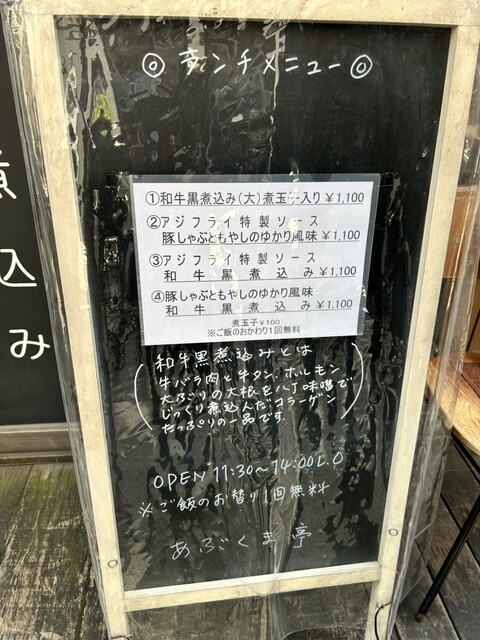 ◎ ランチメニュー ◎
①和牛黒煮込み(大)煮玉子入り ¥1,100
②アジフライ特製ソース
豚しゃぶともやしのゆかり風味 ¥1,100
③アジフライ特製ソース
和牛黒煮込み ¥1,100
④豚しゃぶともやしのゆかり風味
和牛黒煮込み ¥1,100
煮玉子 ¥100
※ご飯のおかわり1回無料
和牛黒煮込みとは
牛バラ肉と牛タン、ホルモン
大ぶりの大根を八丁味噌で
じっくり煮込んだコラーゲン
たっぷりの一品です。
OPEN 11:30〜14:00L.O
※ご飯のお替り1回無料
あぶくま亭
煮
込
み